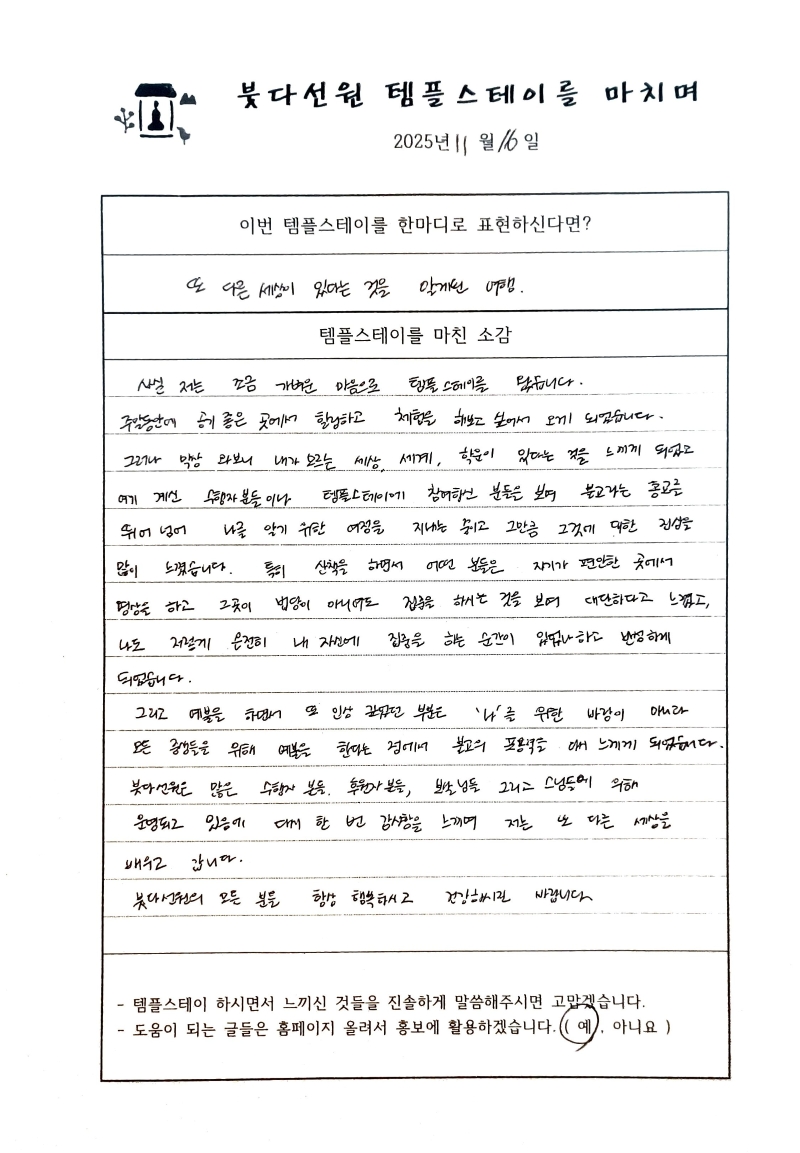 붓다선원 템플스테이를 마치며
2025년 11 월 16 일
이번 템플스테이를 한마디로 표현하신다면?
또 다른 세상이 있다는 것을 알게된 여행.
템플스테이를 마친 소감
사실 저는 조금 가벼운 마음으로 템플스테이를 왔습니다.
주말동안에 공기 좋은 곳에서 힐링하고 체험을 해보고 싶어서 오게 되었습니다.
그러나 막상 와보니 내가 모르는 세상, 세계, 학문이 있다는 것을 느끼게 되었고
여기 계신 수행자분들이나 템플스테이에 참여하신 분들은 보며 불교라는 종교를
뛰어 넘어 나를 알기 위한 여정을 지내는 중이고 그만큼 그것에 대한 진심을
많이 느꼈습니다. 특히 산책을 하면서 어떤 분들은 자기가 편안한 곳에서
명상을 하고 그곳이 법당이 아니여도 집중을 하시는 것을 보며 대단하다고 느꼈고,
나도 저렇게 온전히 내 자신에 집중을 하는 순간이 있었나 하고 반성하게
되었습니다.
그리고 예불을 하면서 또 인상 깊었던 부분은 '나'를 위한 바람이 아니라
모든 중생들을 위해 예불을 한다는 점에서 불교의 포용력을 대해 느끼게 되었습니다.
붓다선원은 많은 수행자 분들, 후원자분들, 보살님들 그리고 스님들에 의해
운영되고 있음에 다시 한 번 감사함을 느끼며 저는 또 다른 세상을
배우고 갑니다.
붓다선원의 모든 분들 항상 행복하시고 건강하시길 바랍니다.
- 템플스테이 하시면서 느끼신 것들을 진솔하게 말씀해주시면 고맙겠습니다.
- 도움이 되는 글들은 홈페이지 올려서 홍보에 활용하겠습니다. ( 예 , 아니요 )